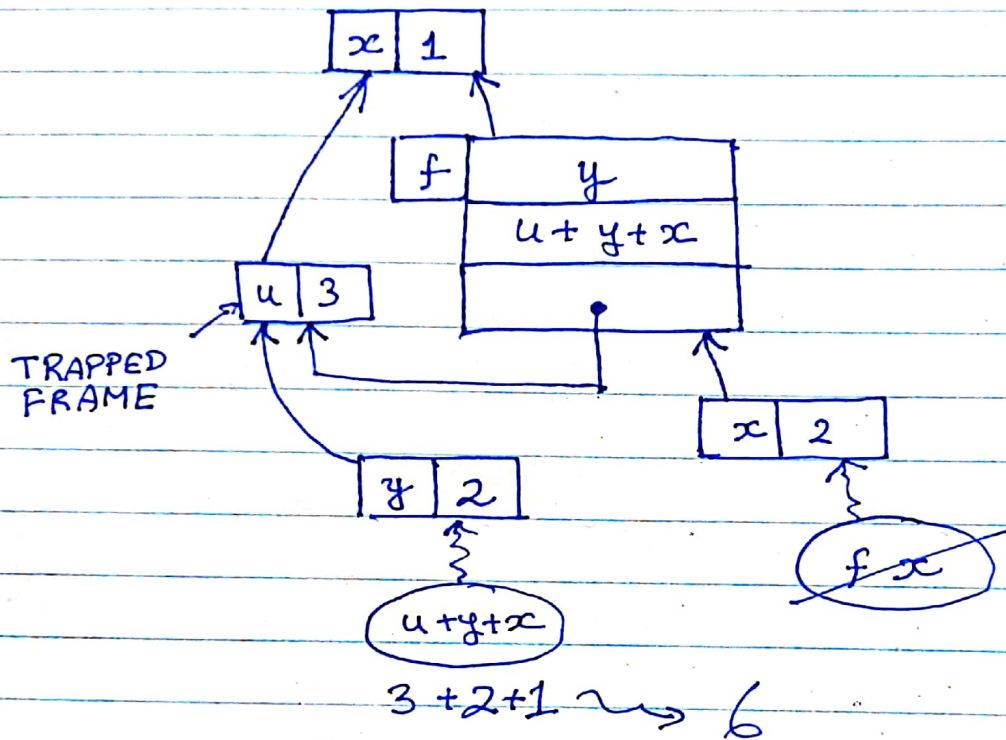 x 1
f y
u + y + x
u 3
TRAPPED
FRAME
x 2
y 2
f x
u + y + x
3 + 2 + 1 ⇝ 6